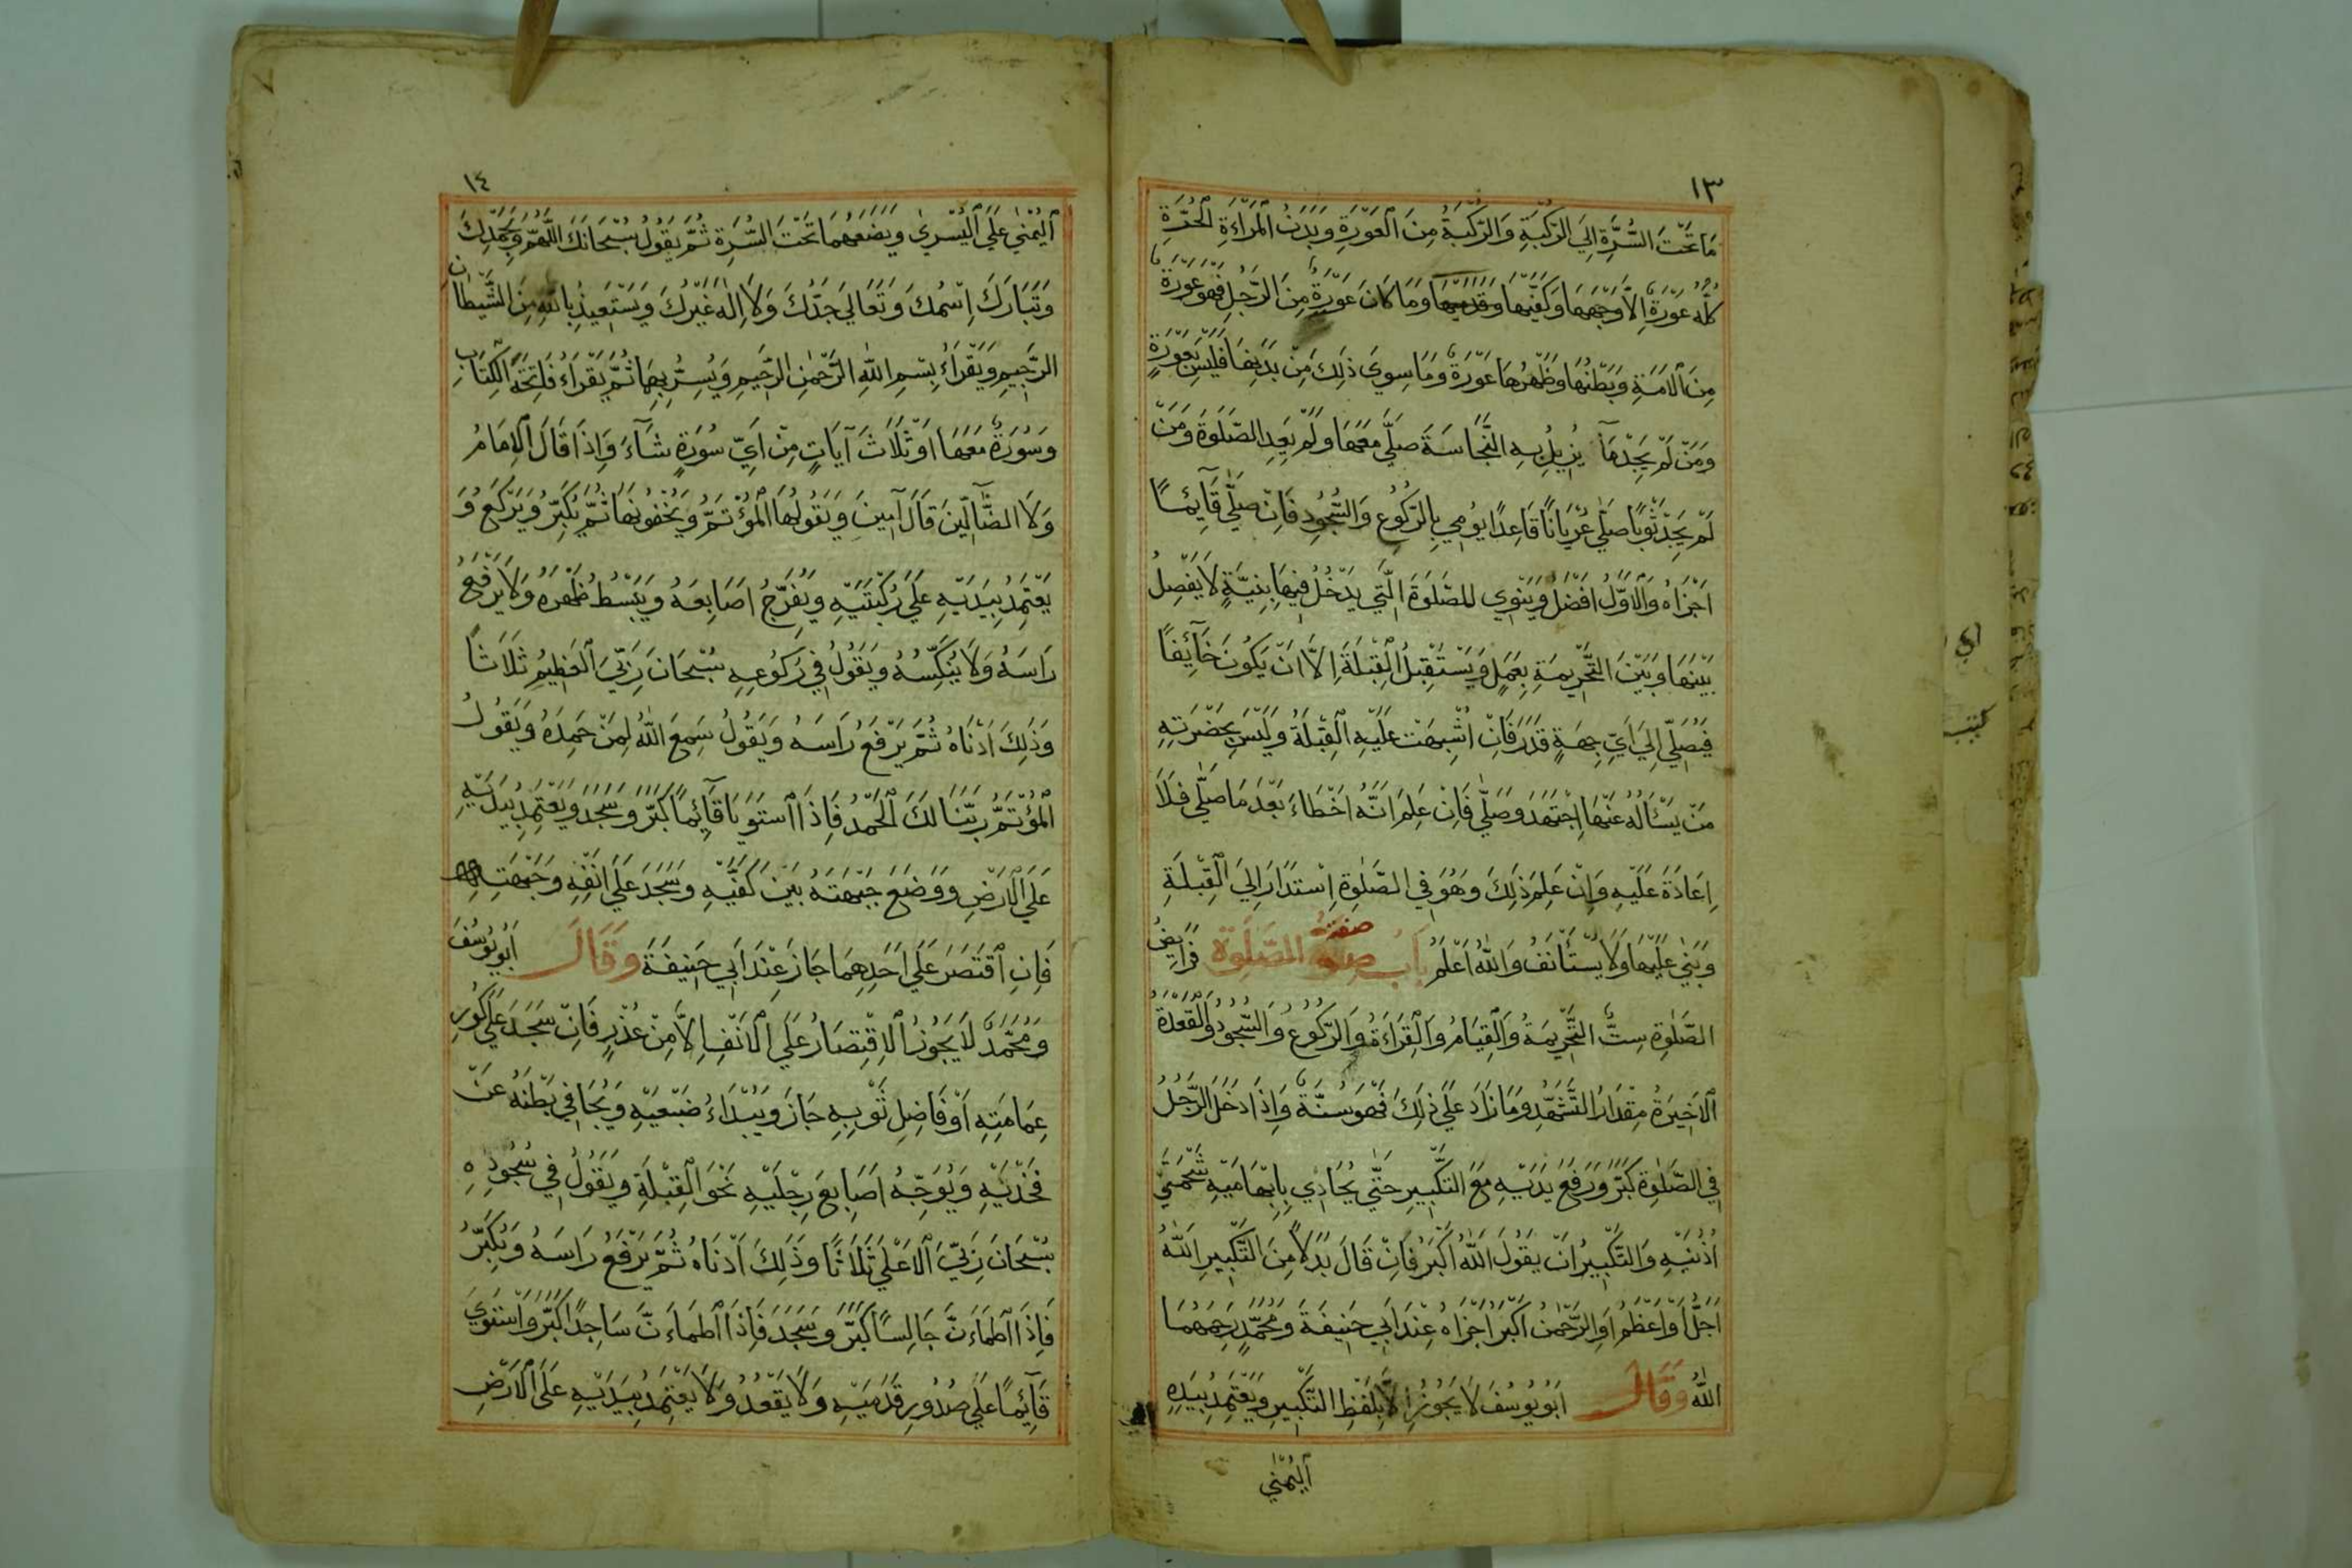 ١٣
مَا تَحْتَ السُّرَّةِ اِلَي الرُّكْبَةِ وَالرُّكْبَةُ مِنَ الْعَوْرَةِ وَبَدَنُ الْمَرْاَءَةِ الْحُرَّةِ
كُلُّهُ عَوْرَةٌ اِلاَّ وَجْهَهَا وَكَفَّيْهَا وَقَدَمَيْهَا وَمَا كَانَ عَوْرَةٌ مِنَ الرَّجُلِ فَهُوَ عَوْرَةٌ
مِنَ الْاَمَةِ وَبَطْنُهَا وَظَهْرُهَا عَوْرَةٌ وَمَا سِوَيَ ذٰلِكَ مِنْ بَدَنِهَا فَلَيْسَ بِعَوْرَةٍ
وَمَنْ لَمْ يَجِدْ مَآ يُزِيلُ بِهِ النَّجَاسَةَ صَلَّي مَعَهَا وَلَمْ يُعِدِ الصَّلَوٰةَ وَمَنْ
لَمْ يَجِدْ ثَوْبًا صَلَّي عُرْيَانًا قَاعِدًا يُومِي بِالرُّكُوعِ وَالسُّجُودِ فَاِنْ صَلَّي قَآيِمًا
اَجْزَاهُ وَالْاَوَّلُ اَفْضَلُ وَيَنْوِي لِلصَّلَوٰةَ الَّتِي يَدْخُلُ فِيهَا بِنِيَّةٍ لاَ يَفْصِلُ
بَيْنَهَا وَبَيْنَ التَّحْرِيمَةِ بِعَمَلٍ وَيَسْتَقْبِلُ الْقِبْلَةَ اِلاَّ اَنْ يَكُونَ خَآئِفًا
فَيُصَلِّي اِلَي اَيِّ جِهَةٍ قَدَرَ فَاِنْ اُشْبِهَتْ عَلَيْهِ الْقِبْلَةُ وَلَيْسَ بِحَضْرَتِهِ
مَنْ يَسْئَالُهُ عَنْهَا اِجْتَهَدَ وَصَلَّي فَاِنْ عَلِمَ اَنَّهُ اَخْطَاءَ بَعْدَ مَا صَلَّي فَلاَ
اِعَادَةَ عَلَيْهِ وَاِنْ عَلِمَ ذٰلِكَ وَهُوَ فِي الصَّلٰوةِ اِسْتَدَارَ اِلَي الْقِبْلَةِ
وَبَنٰي عَلَيْهَا وَلاَ يُسْتَأْنَفُ وَاللّٰهُ اَعْلَمُ بَابُ صِفَةِ الصَّلَوٰةِ فَرَايِضُ
الصَّلٰوةِ سِتٌّ التَّحْرِيمَةُ وَالْقِيَامُ وَالْقِرَاءَةُ وَالرُّكُوعُ وَالسُّجُودُ وَالْقَعْدَةُ
الْاَخِيرَةُ مِقْدَارُ التَّشَهُّدِ وَمَا زَادَ عَلَي ذٰلِكَ فَهُوَ سُنَّةٌ وَاِذَا دَخَلَ الرَّجُلُ
فِي الصَّلٰوةِ كَبَّرَ وَرَفَعَ يَدَيْهِ مَعَ التَّكْبِيرِ حَتّٰي يُحَاذِي بِاِبْهَامَيْهِ شَحْمَتَيْ
اُذُنَيْهِ وَالتَّكْبِيرُ اَنْ يَقُولَ اللّٰهُ اَكْبَرُ فَاِنْ قَالَ بَدَلاً مِنَ التَّكْبِيرِ اَللّٰهُ
اَجَلُّ اَوْ اَعْظَمُ اَوِ الرَّحْمٰنُ اَكْبَرُ اَجْزَاهُ عِنْدَ اَبِي حَنِيفَةَ وَمُحَمَّدٍ رَحِمَهُمَا
اللّٰهُ وَقَالَ اَبُو يُوسُفَ لاَ يَجُوزُ اِلاَّ بِلَفْظِ التَّكْبِيرِ وَيَعْتَمِدُ بِيَدِهِ
اَلْيُمْنٰي
١٤
اَلْيُمْنٰي عَلَي الْيُسْرٰي وَيَضَعُهُمَا تَحْتَ السُّرَةِ ثُمَّ يَقُولُ سُبْحَانَكَ اللّٰهُمَّ وَبِحَمْدِكَ
وَتَبَارَكَ اِسْمُكَ وَتَعَالَي جَدُّكَ وَلاَ اِلٰهَ غَيْرُكَ وَيَسْتَعِيذُ بِاللّٰهِ مِنَ الشَّيْطَانِ
الرَّجِيمِ وَيَقْرَاءُ بِسْمِ اللّٰهِ الرَّحْمٰنِ الرَّحِيمِ وَيُسِرُّ بِهِمَا ثُمَّ يَقْرَاءُ فَاتِحَةَ الْكِتَابِ
وَسُورَةٌ مَعَهَا اَوْ ثَلَاثَ آيَاتٍ مِنْ اَيِّ سُورَةٍ شَآءَ وَاِذَا قَالَ الْاِمَامُ
وَلاَ الضَّآلِّينَ قَالَ آمِينَ وَيَقُولُهَا الْمُؤْتَمُّ وَيُخْفُونَهَا ثُمَّ يُكَبِّرُ وَيَرْكَعُ وَ
يَعْتَمِدُ بِيَدَيْهِ عَلَي رُكْبَتَيْهِ وَيُفَرِّجُ اَصَابِعَهُ وَيَبْسُطُ ظَهْرَهُ وَلاَ يَرْفَعُ
رَاسَهُ وَلاَ يُنَكِّسُهُ وَيَقُولُ فِي رُكُوعِهِ سُبْحَانَ رَبِّيَ الْعَظِيمُ ثَلاَثاً
وَذٰلِكَ اَدْنَاهُ ثُمَّ يَرْفَعُ رَاسَهُ وَيَقُولُ سَمِعَ اللّٰهُ لِمَنْ حَمِدَهُ وَيَقُولُ
الْمُؤْتَمُّ رَبَّنَا لَكَ الْحَمْدُ فَاِذَا اسْتَوَيَا قَآئِمًا كَبَّرَ وَسَجَدَ وَيَعْتَمِدُ بِيَدَيْهِ
عَلَي الْاَرْضِ وَوَضَعَ جَبْهَتَهُ بَيْنَ كَفَّيْهِ وَسَجَدَ عَلَي اَنْفِهِ وَجَبْهَتِهِ
فَاِنِ اقْتَصَرَ عَلَي اَحَدِهِمَا جَازَ عِنْدَ اَبِي حَنِيفَةَ وَقَالَ اَبُو يُوسُفَ
وَمُحَمَّدٌ لاَ يَجُوزُ الْاِقْتِصَارُ عَلَي الْاَنْفِ اِلاَّ مِنْ عُذْرٍ فَاِنْ سَجَدَ عَلَي كُورِ
عِمَامَتِهِ اَوْ فَاضِلِ ثَوْبِهِ جَازَ وَيُبْدَاءُ ضَبْعَيْهِ وَيُجَافِي بَطْنَهُ عَنْ
فَخْذَيْهِ وَيُوَجِّهُ اَصَابِعَ رِجْلَيْهِ نَحْوَ الْقِبْلَةِ وَيَقُولُ فِي سُجُودِهِ
سُبْحَانَ رَبِّيَ الْاَعْلَي ثَلَاثًا وَذٰلِكَ اَدْنَاهُ ثُمَّ يَرْفَعُ رَاسَهُ وَيُكَبِّرُ
فَاِذَا اطْمَاءَنَّ جَالِسًا كَبَّرَ وَسَجَدَ فَاِذَا اطْمَاءَنَّ سَاجِدًا كَبَّرَ وَاسْتَوَيَ
قَآئِمًا عَلَي صُدُورِ قَدَمَيْهِ وَلاَ يَقْعُدُ وَلاَ يَعْتَمِدُ بِيَدَيْهِ عَلَي الْاَرْضِ